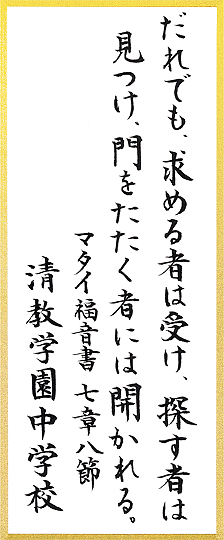 だれでも、求める者は受け、探す者は
見つけ、門をたたく者には開かれる。
マタイ福音書 七章八節
清教学園中学校